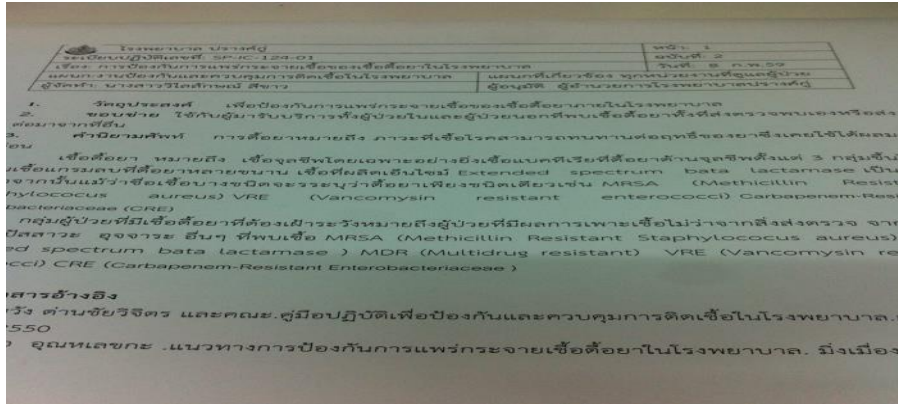 โรงพยาบาล ปรางค์กู่ หน้า: 1
ระเบียบปฏิบัติเลขที่: SP-IC-124-01 ฉบับที่: 2
เรื่อง: การป้องกันการแพร่กระจายเชื้อของเชื้อดื้อยาในโรงพยาบาล วันที่: 8 ก.พ.59
แผนก: งานป้องกันและควบคุมการติดเชื้อในโรงพยาบาล แผนกที่เกี่ยวข้อง ทุกหน่วยงานที่ดูแลผู้ป่วย
ผู้จัดทำ: นางสาววิไลลักษณ์ สีขาว ผู้อนุมัติ ผู้อำนวยการโรงพยาบาลปรางค์กู่
1. วัตถุประสงค์ เพื่อป้องกันการแพร่กระจายเชื้อของเชื้อดื้อยาภายในโรงพยาบาล
2. ขอบข่าย ใช้กับผู้มารับบริการทั้งผู้ป่วยในและผู้ป่วยนอกที่พบเชื้อดื้อยาทั้งที่ส่งตรวจพบเองหรือส่ง
ต่อมาจากที่อื่น
3. คำนิยามศัพท์ การดื้อยาหมายถึง ภาวะที่เชื้อโรคสามารถทนทานต่อฤทธิ์ของยาซึ่งเคยใช้ได้ผลม
่อน
เชื้อดื้อยา หมายถึง เชื้อจุลชีพโดยเฉพาะอย่างยิ่งเชื้อแบคทีเรียที่ดื้อยาต้านจุลชีพตั้งแต่ 3 กลุ่มขึ้น
เชื้อแกรมลบที่ดื้อยาหลายขนาน เชื้อที่ผลิตเอ็นไซม์ Extended spectrum bata lactamase เป็น
จากนั้นแม้ว่าชื่อเชื้อบางชนิดจะระบุว่าดื้อยาเพียงชนิดเดียวเช่น MRSA (Methicillin Resist
phylococcus aureus) VRE (Vancomysin resistant enterococci) Carbapenem-Resi
bacteriaceae (CRE)
กลุ่มผู้ป่วยที่มีเชื้อดื้อยาที่ต้องเฝ้าระวังหมายถึงผู้ป่วยที่มีผลการเพาะเชื้อไม่ว่าจากสิ่งส่งตรวจ จาก
ปัสสาวะ อุจจาระ อื่นๆ ที่พบเชื้อ MRSA (Methicillin Resistant Staphylococus aureus)
ed spectrum bata lactamase ) MDR (Multidrug resistant) VRE (Vancomysin re
cocci) CRE (Carbapenem-Resistant Enterobacteriaceae )
สารอ้างอิง
วัง ด่านชัยวิจิตร และคณะ.คู่มือปฏิบัติเพื่อป้องกันและควบคุมการติดเชื้อในโรงพยาบาล.
550
อุณหเลขกะ .แนวทางการป้องกันการแพร่กระจายเชื้อดื้อยาในโรงพยาบาล. มิ่งเมือง